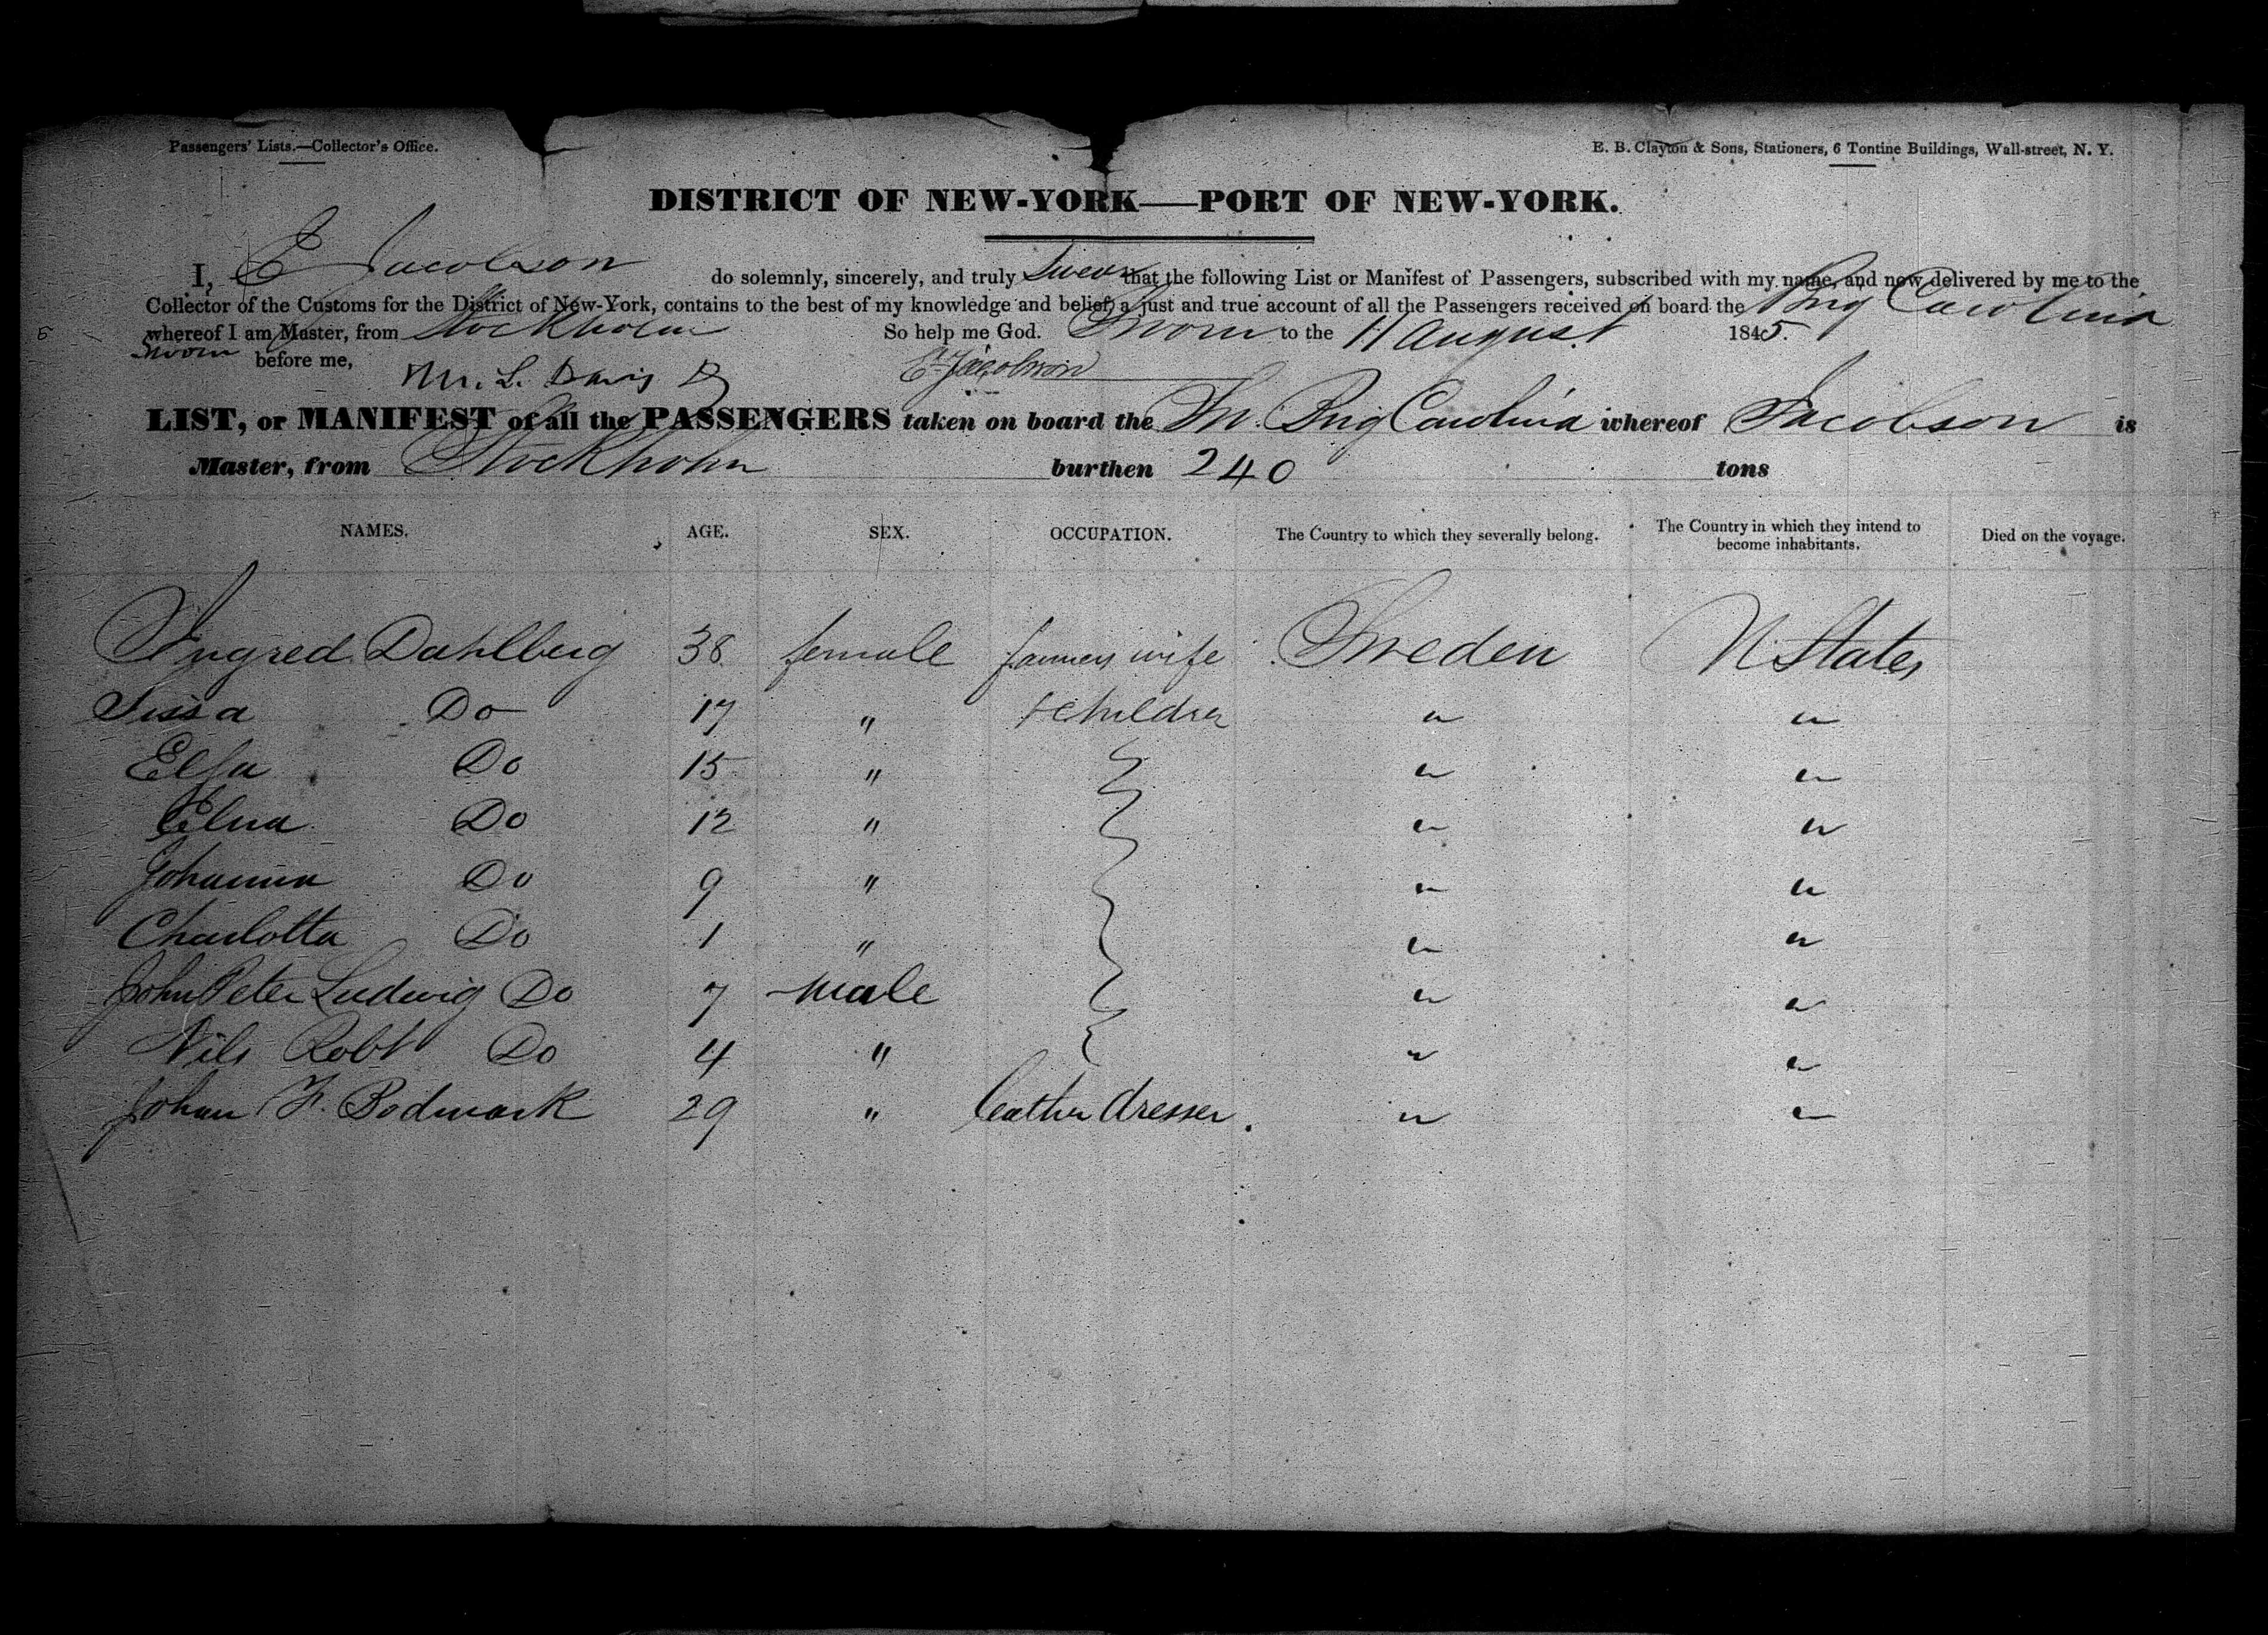 Passengers' Lists.—Collector's Office.
E. B. Clayton & Sons, Stationers, 6 Tontine Buildings, Wall-street, N. Y.
DISTRICT OF NEW-YORK—PORT OF NEW-YORK.
I, E Jacobson do solemnly, sincerely, and truly Swear that the following List or Manifest of Passengers, subscribed with my name, and now delivered by me to the
Collector of the Customs for the District of New-York, contains to the best of my knowledge and belief, a just and true account of all the Passengers received on board the Brig Carolina
5 whereof I am Master, from Stockholm So help me God. Sworn to the 11 August 1845.
Sworn before me, M. L. Davis E. Jacobson
LIST, or MANIFEST of all the PASSENGERS taken on board the Brig Carolina whereof Jacobson is
Master, from Stockholm burthen 240 tons
NAMES. AGE. SEX. OCCUPATION. The Country to which they severally belong. The Country in which they intend to become inhabitants. Died on the voyage.
Ingred Dahlberg 38 female farmers wife Sweden U States
Sissa Do 17 " + children " "
Elsa Do 15 " " "
Elna Do 12 " " "
Johanna Do 9 " " "
Charlotta Do 1 " " "
John Peter Ludwig Do 7 male " "
Nils Robt Do 4 " " "
Johan F. Bodmark 29 " leather dresser. " "